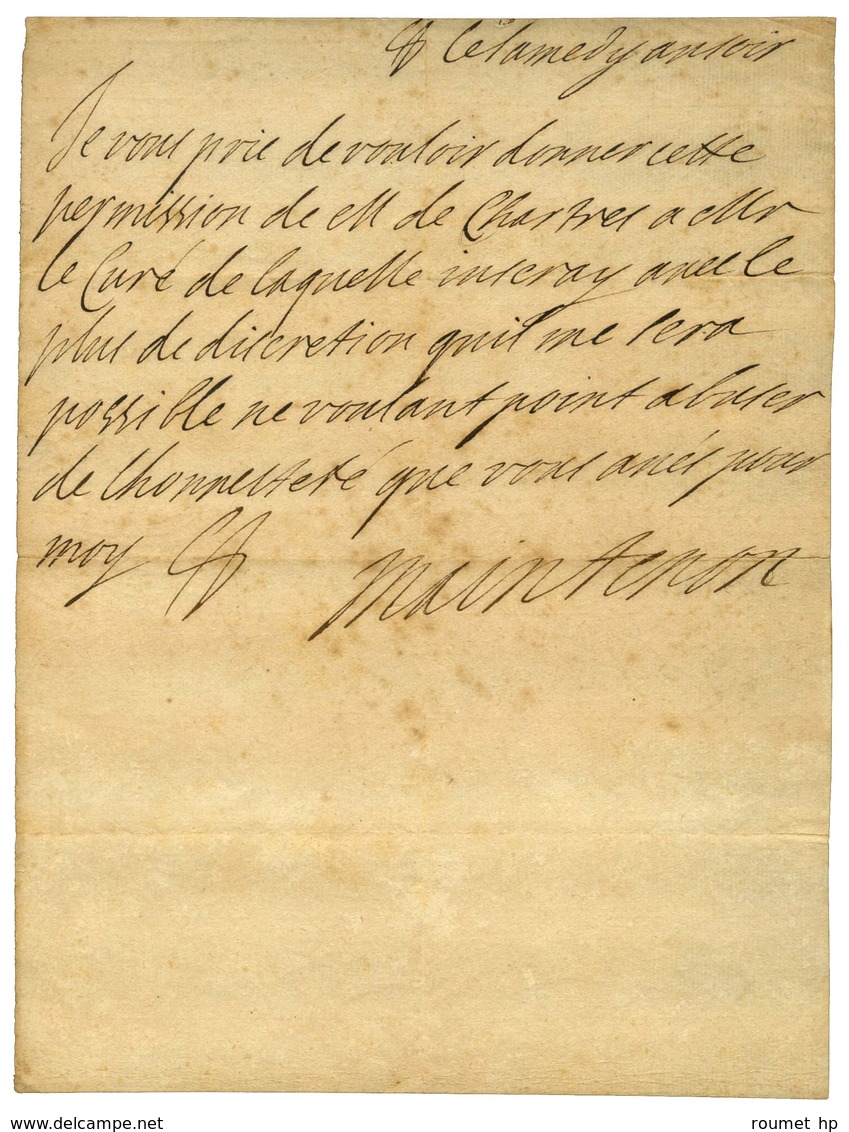 ce samedy au soir
Je vous prie de vouloir donner cette
permission de M de Chartres a Mr
le Curé de laquelle j'useray avec le
plus de discretion quil me sera
possible ne voulant point abuser
de lhonnesteté que vous avés pour
moy Maintenon
www.delcampe.net
roumet hp